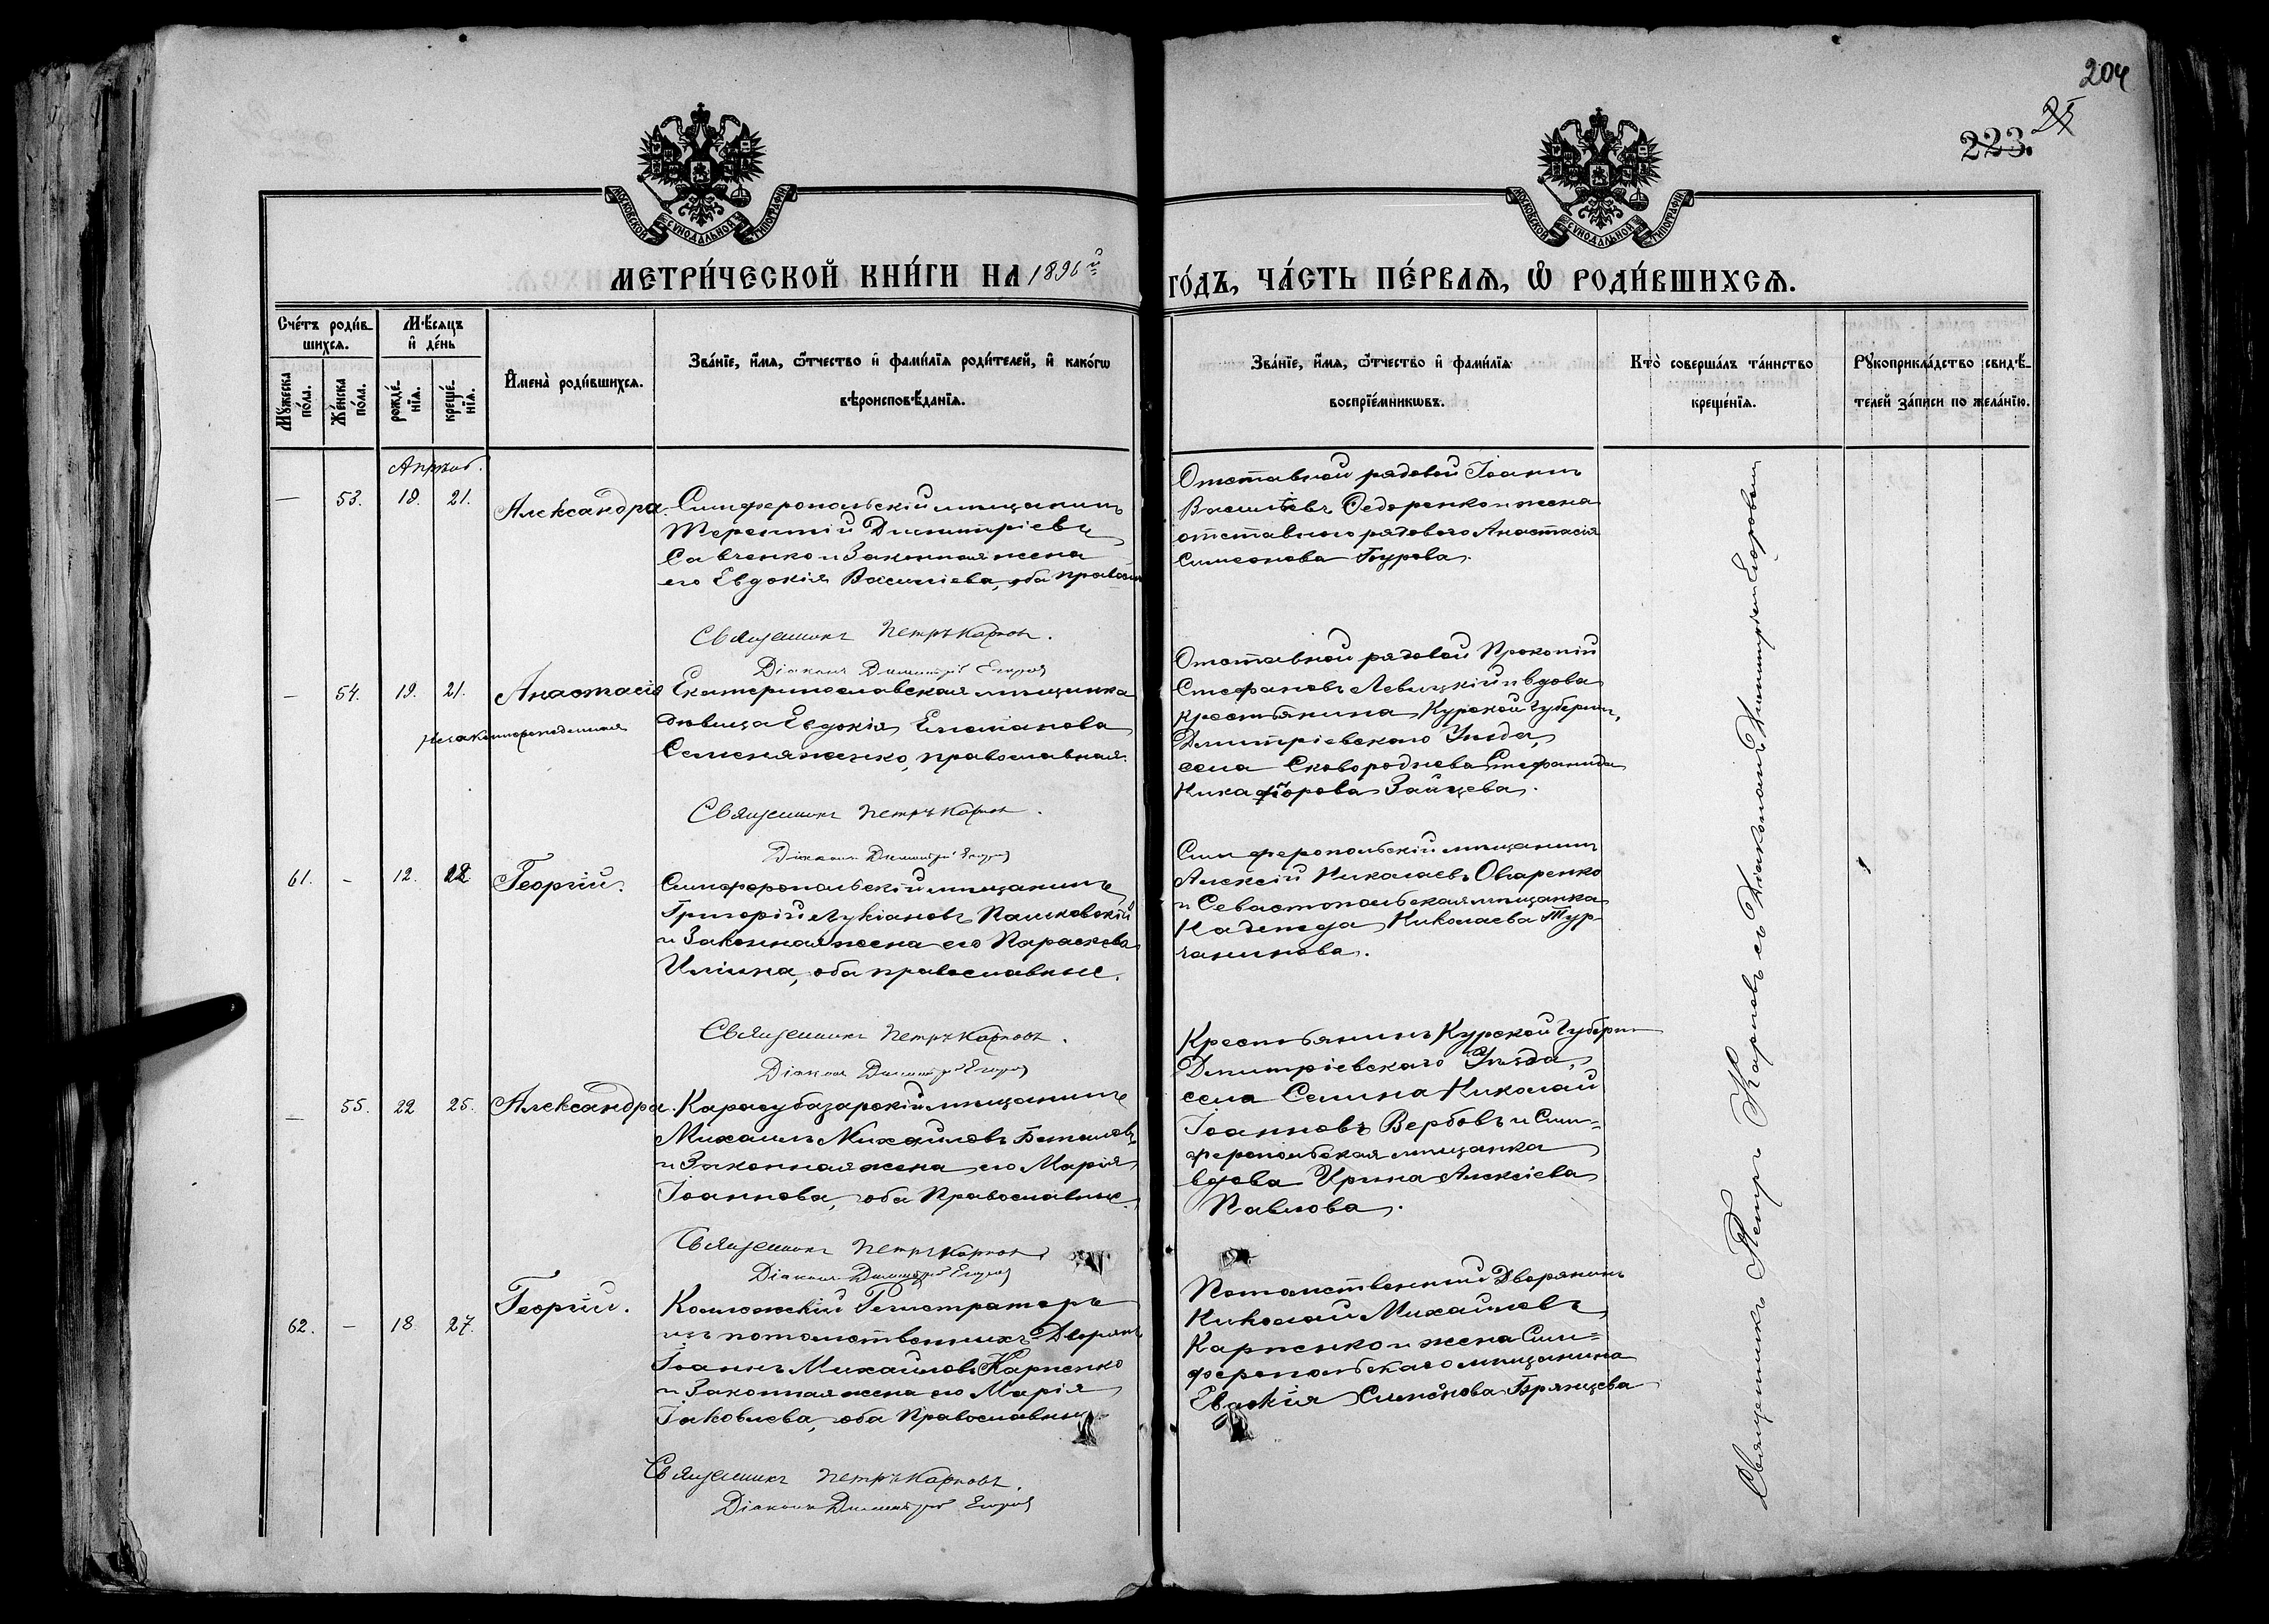 204
25
223.
МОСКОВСКОЙ СѴНОДАЛЬНОЙ ТИПОГРАФІИ
МОСКОВСКОЙ СѴНОДАЛЬНОЙ ТИПОГРАФІИ
МЕТРИ́ЧЕСКОЙ КНИ́ГИ НА 1896й
ГО́ДЪ, ЧА́СТЬ ПЕ́РВАѦ, Ѽ РОДИ́ВШИХСѦ.
Сче́тъ роди́в-
шихсѧ.
Мꙋжеска по́ла.
Же́нска по́ла.
Мѣ́сѧцъ
и҆ де́нь
рожде́нїѧ.
креще́нїѧ.
И҆мена̀ роди́вшихсѧ.
Зва́нїе, и҆́мѧ, ѻ҆́тчество и҆ фами́лїѧ роди́телей, и҆ како́гѡ
вѣроисповѣ́данїѧ.
Зва́нїе, и҆́мѧ, ѻ҆́тчество и҆ фами́лїѧ
воспрїе́мникѡвъ.
Кто̀ соверша́лъ та́инство
креще́нїѧ.
Рꙋкоприкла́дство свидѣ́-
телей за́писи по жела́нїю.
Апрѣль.
— 53. 19. 21. Александра.
Симферопольскій мѣщанинъ
Терентій Димитріевъ
Савченко и законная жена
его Евдокія Василіева, оба правосл
Священникъ Петръ Карповъ.
Діаконъ Димитрій Егоровъ
Отставной рядовой Іоаннъ
Васильевъ Федоренко и жена
отставного рядового Анастасія
Симеонова Бурова.
— 54. 19. 21. Анастасія
незаконнорожденная
Екатеринославская мѣщанка
дѣвица Евдокія Степанова
Семеняженко, православная.
Священникъ Петръ Карповъ.
Діаконъ Димитрій Егоровъ
Отставной рядовой Прокопій
Стефановъ Левицкій и вдова
крестьянина Курской Губерніи,
Дмитріевскаго Уѣзда,
села Сковороднева Стефанида
Никафорова Зайцева.
61. — 12. 22. Георгій.
Симферопольскій мѣщанинъ
Григорій Лукіановъ Пашковскій
и законная жена его Параскева
Иліина, оба православные.
Священникъ Петръ Карповъ.
Діаконъ Димитрій Егоровъ
Симферопольскій мѣщанинъ
Алексій Николаевъ Овчаренко
и Севастопольская мѣщанка
Надежда Николаева Тур-
чанинова.
— 55. 22 25. Александра.
Карасубазарскій мѣщанинъ
Михаилъ Михайловъ
и законная жена его Марія
Іоаннова, оба Православные.
Священникъ Петръ Карповъ
Діаконъ Димитрій Егоровъ
Крестьянинъ Курской Губерн
Дмитріевскаго Уѣзда,
села Селина Николай
Іоанновъ Вербовъ и Сим=
феропольская мѣщанка
вдова Ирина Алексіева
Павлова.
62. — 18. 27. Георгій.
Коллежскій Регистраторъ
изъ потомственныхъ Дворянъ
Іоаннъ Михайловъ Карпенко
и законная жена его Марія
Іаковлева, оба Православные.
Священникъ Петръ Карповъ.
Діаконъ Димитрій Егоровъ
Потомственный Дворянинъ
Николай Михайловъ
Карпенко и жена Сим=
феропольскаго мѣщанина
Евдокія Симеонова Брянцева
Священникъ Петръ Карповъ съ Діакономъ Димитріемъ Егоровымъ